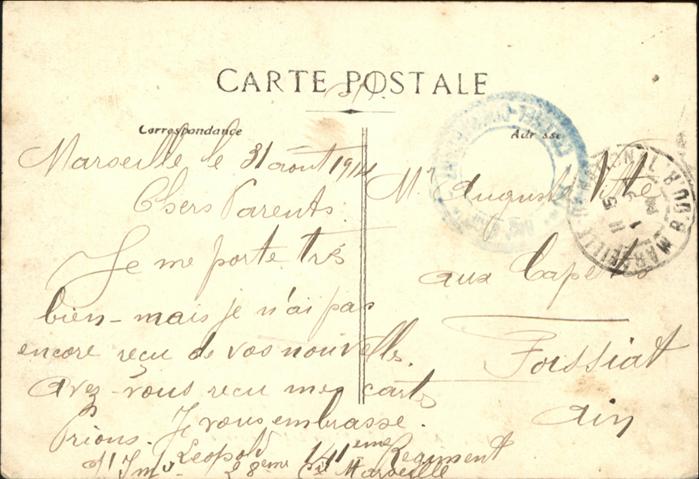 CARTE POSTALE
Correspondance
Adresse
Marseille le 31 août 1914
Chers Parents
Je me porte très
bien - mais je n'ai pas
encore reçu de vos nouvelles.
Avez-vous reçu mes cartes
Prions. Je vous embrasse.
Leopold 141eme Regiment
28eme Cie Marseille
Mr Auguste Vitte
aux Cape
Foissiat
Ain
MARSEILLE
B. DU R.